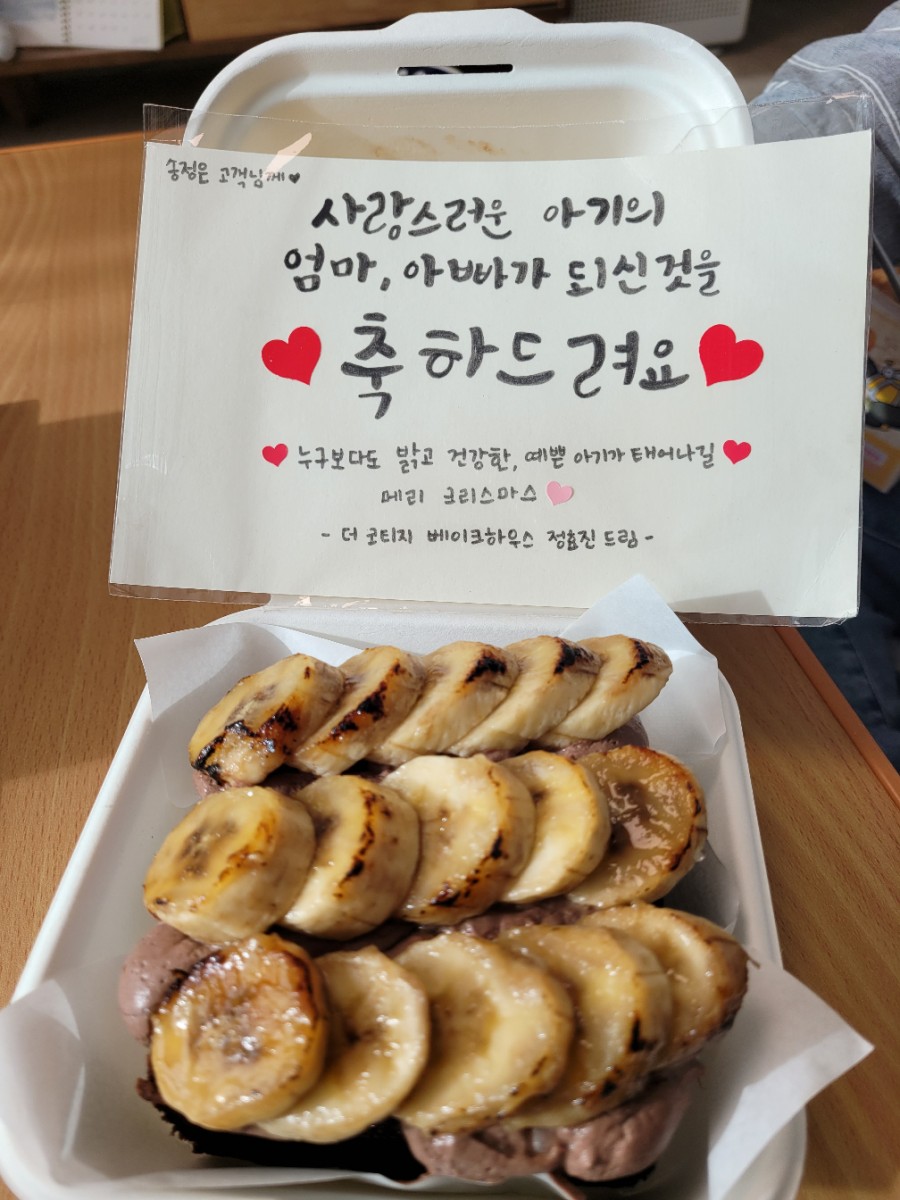 송정은 고객님께♥
사랑스러운 아기의
엄마, 아빠가 되신것을
축하드려요
누구보다도 밝고 건강한, 예쁜 아기가 태어나길
메리 크리스마스
- 더 코티지 베이크하우스 정효진 드림 -